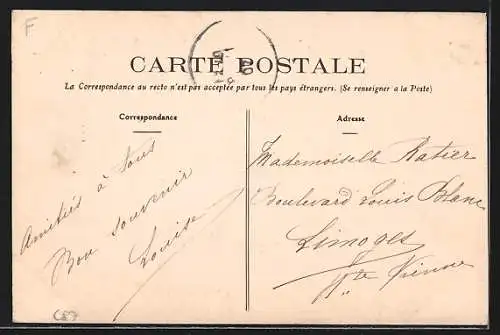 F
CARTE POSTALE
La Correspondance au recto n'est pas acceptée par tous les pays étrangers. (Se renseigner a la Poste)
Correspondance
Amitiés à tous
Bon souvenir
Louise
Adresse
Mademoiselle Ratier
Boulevard Louis Blanc
Limoges
Hte Vienne